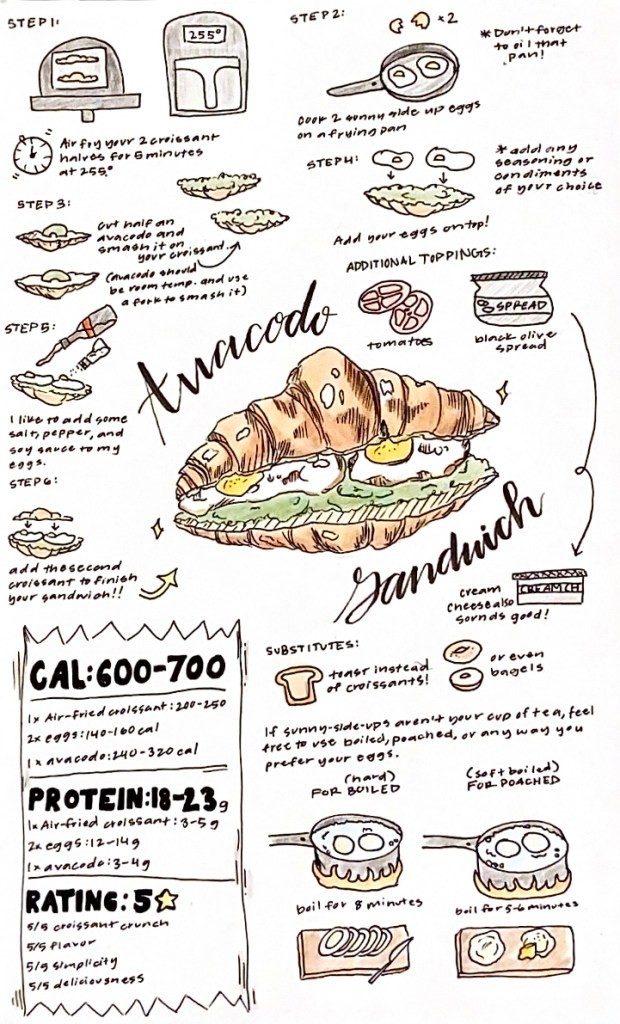 STEP 1:
255°
Air fry your 2 croissant
halves for 5 minutes
at 255°
STEP 2:
x2
*Don't forget
to oil that
pan!
Cook 2 sunny side up eggs
on a frying pan
STEP 3:
Cut half an
avacado and
smash it on
your croissant.
(avacado should
be room temp. and use
a fork to smash it)
STEP 4:
*add any
seasoning or
condiments
of your choice
Add your eggs on top!
ADDITIONAL TOPPINGS:
tomatoes
SPREAD
black olive
spread
STEP 5:
I like to add some
salt, pepper, and
soy sauce to my
eggs.
Avacodo
Sandwich
STEP 6:
add the second
croissant to finish
your sandwich!!
cream
cheese also
sounds good!
CREAM CH
CAL: 600-700
1x Air-fried croissant: 200-250
2x eggs: 140-160 cal
1x avacado: 240-320 cal
PROTEIN: 18-23g
1x Air-fried croissant: 3-5g
2x eggs: 12-14g
1x avacado: 3-4g
RATING: 5
5/5 croissant crunch
5/5 flavor
5/5 simplicity
5/5 deliciousness
SUBSTITUTES:
toast instead
of croissants!
or even
bagels
If sunny-side-ups aren't your cup of tea, feel
free to use boiled, poached, or any way you
prefer your eggs.
(hard)
FOR BOILED
boil for 8 minutes
(soft boiled)
FOR POACHED
boil for 5-6 minutes